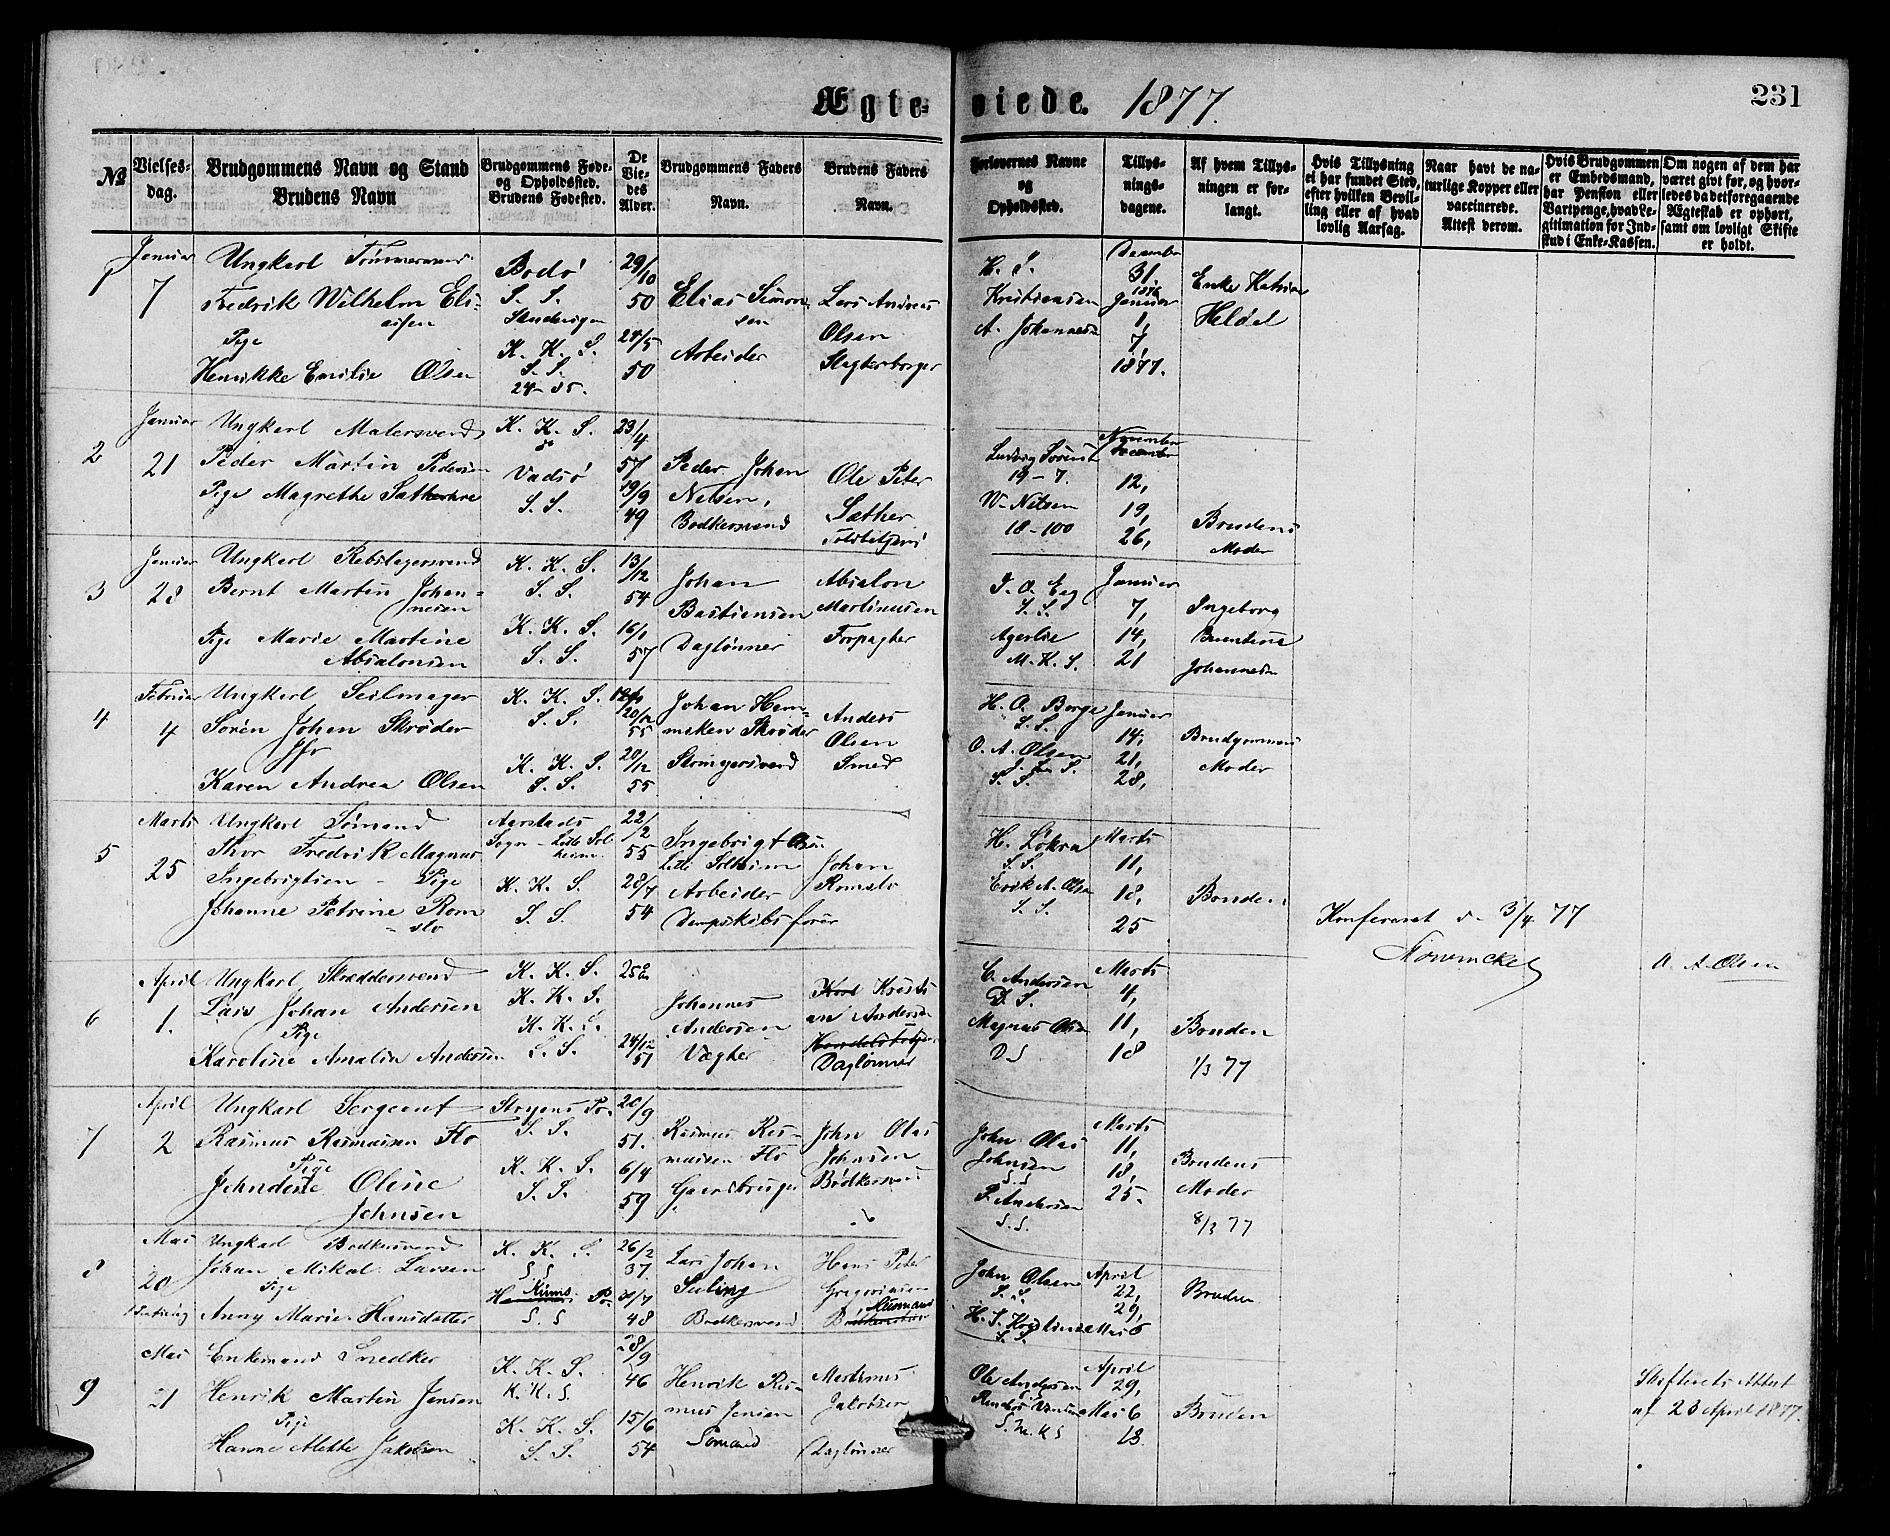 Ægteviede. 1877. 231
№
Vielsesdag.
Brudgommens Navn og Stand
Brudens Navn
Brudgommens Føde- og Opholdssted.
Brudens Fødested.
De Viedes Alder.
Brudgommens Faders Navn.
Brudens Faders Navn.
Forlovernes Navne og Opholdssted.
Tillysningsdagene.
Af hvem Tillysningen er forlangt.
Hvis Tillysning ei har fundet Sted, efter hvilken Bevilling eller af hvad lovlig Aarsag.
Naar havt de naturlige Kopper eller vaccinerede. Attest derom.
Hvis Brudgommen er Embedsmand, har Pension eller Vartpenge, hvad Legitimation for Indskud i Enke-Kassen.
Om nogen af dem har været givt før, og hvorledes da det foregaaende Ægteskab er ophørt, samt om lovligt Skifte er holdt.
1
Januar
7
Ungkarl Tømmermand
Fredrik Wilhelm Eliassen
Pige
Henrikke Emilie Olsen
Bodø
S. S.
Sandvigen
K. K. S.
S. S.
29/10
50
24/5
50
Elias Simonsen
Arbeider
Lars Andreas
Olsen
H. S.
Kristiansen
A. Johannesen
December
31,
1876
Januar
1,
7,
1877.
Enke Katrine
Heldal
2
Januar
21
Ungkarl Malersvend
Peder Martin Pedersen
Pige Magrethe
K. K. S.
Vadsø
S. S.
23/4
57,
19/9
49
Peder Johan
Nelsen,
Bødkersvend
Ole Peter
Sæther
Ludvig Sørensen
19-7.
W. Nilsen
18-100
November
December
12,
19,
26,
Brudens
Moder
3
Januar
28
Ungkarl Rebslagersvend
Bernt Martin Johannesen
Pige Marie Martine
Absalonsen
K. K. S.
S. S.
K. K. S.
S. S.
13/12
54
16/1
57
Johan
Bastiensen
Daglønner
Absalon
Martinusen
Forpagter
S. S.
M. K. S.
Januar
7,
14,
21
Ingeborg
Johannesen
4
Februar
4
Ungkarl Seilmager
Soren Johan Skrøder
Karen Andrea Olsen
K. K. S.
S. S.
K. K. S.
S. S.
20/12
55
20/12
55
Anders
Olsen
Smed
H. O. Borge
S. S.
O. A. Olsen
S. S.
Januar
14,
21,
28,
Brudgommens
Moder
5
Marts
25
Ungkarl Sømand
Thor Fredrik Magnus
Ingebrigtsen - Pige
Johanne Petrine Romslo
Aarstads
Sogn - Lille Solheim
K. K. S.
S. S.
22/2
55
28/7
54
Lille Solheim
Arbeider
Johan
Romslo
Dampskibsfører
H. Løkra
S. S.
Erik A. Olsen
S. S.
Marts
11,
18,
25
Bruden
Konfereret d. 3/4. 77
6
April
1.
Ungkarl Skræddersvend
Lars Johan Andersen
Pige
Karoline Amalia Andersen
K. K. S.
K. K. S.
K. K. S.
S. S.
24/12
51
Johannes
Andersen
Vægter
Kristian Andersen
Daglønner
C. Andersen
D. S.
Magnus Olsen
D S
Marts
4,
11,
18
Bruden
1/3 77
O. A. Olsen
7
April
2
Ungkarl Sergeant
Rasmus Rasmusen Flo
Pige
Johndine Oline
Johnsen
S. S.
K. K. S.
S. S.
20/9
51.
6/4
59
Rasmus Rasmusen Flo
Gaardbruger
John Olai
Johnsen
John Olai
Johnsen
S S
P. Andersen
S. S.
Marts
11,
18,
25.
Brudens
Moder
8/3 77
8
Mai
20
Ungkarl Bødkersvend
Johan Mikal Larsen
Pige
Anny Marie Hansdatter
K. K. S.
S S
S. S
26/2
37.
48
Lars Johan
Bødkersvend
Hans Peter
Gregoriusen
Husmand
John Olsen
S. S.
S. S.
April
22,
29,
Mai 6
Bruden
9
Mai
21
Enkemand Snedker
Henrik Martin Jensen
Pige
Hanne Mette Jakobsen
K. K. S.
K. K. S.
K. K. S.
S. S.
28/9
46
15/6
54
Henrik Rasmus Jensen
Sømand
Martinus
Jakobsen
Daglønner
Ole Andersen
April
29,
Mai 6
13
Bruden
Skifterets Attest
af 23 April 1877.